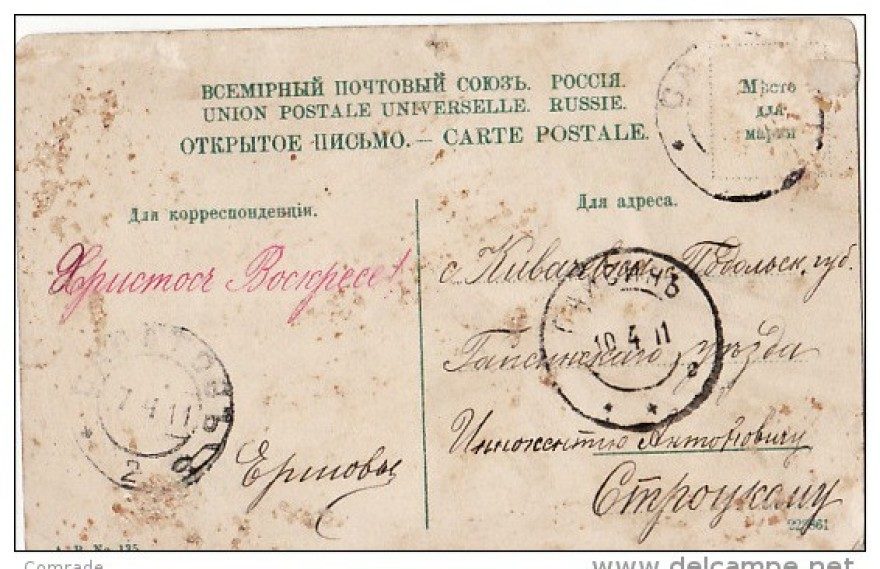 ВСЕМІРНЫЙ ПОЧТОВЫЙ СОЮЗЪ. РОССІЯ.
UNION POSTALE UNIVERSELLE. RUSSIE.
ОТКРЫТОЕ ПИСЬМО. — CARTE POSTALE.
Мѣсто
для
марки
Для корреспонденціи.
Для адреса.
Христосъ Воскресе!
с. Подольск. губ.
Гайсинскаго уѣзда
Иннокентію Антоновичу
Строцкому
10 4 11
7 4 11
2
223861
A. B. No. 135
Comrade
www.delcampe.net